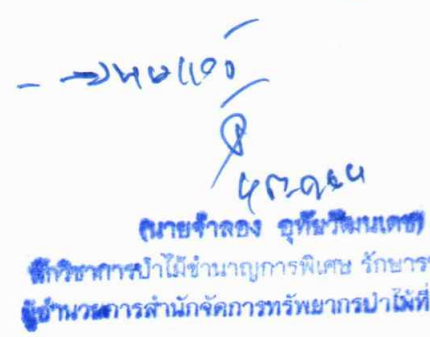 - ทราบแล้ว
(นายจำลอง อุทัยวัฒนเดช)
นักวิชาการป่าไม้ชำนาญการพิเศษ รักษาร
ผู้อำนวยการสำนักจัดการทรัพยากรป่าไม้ที่